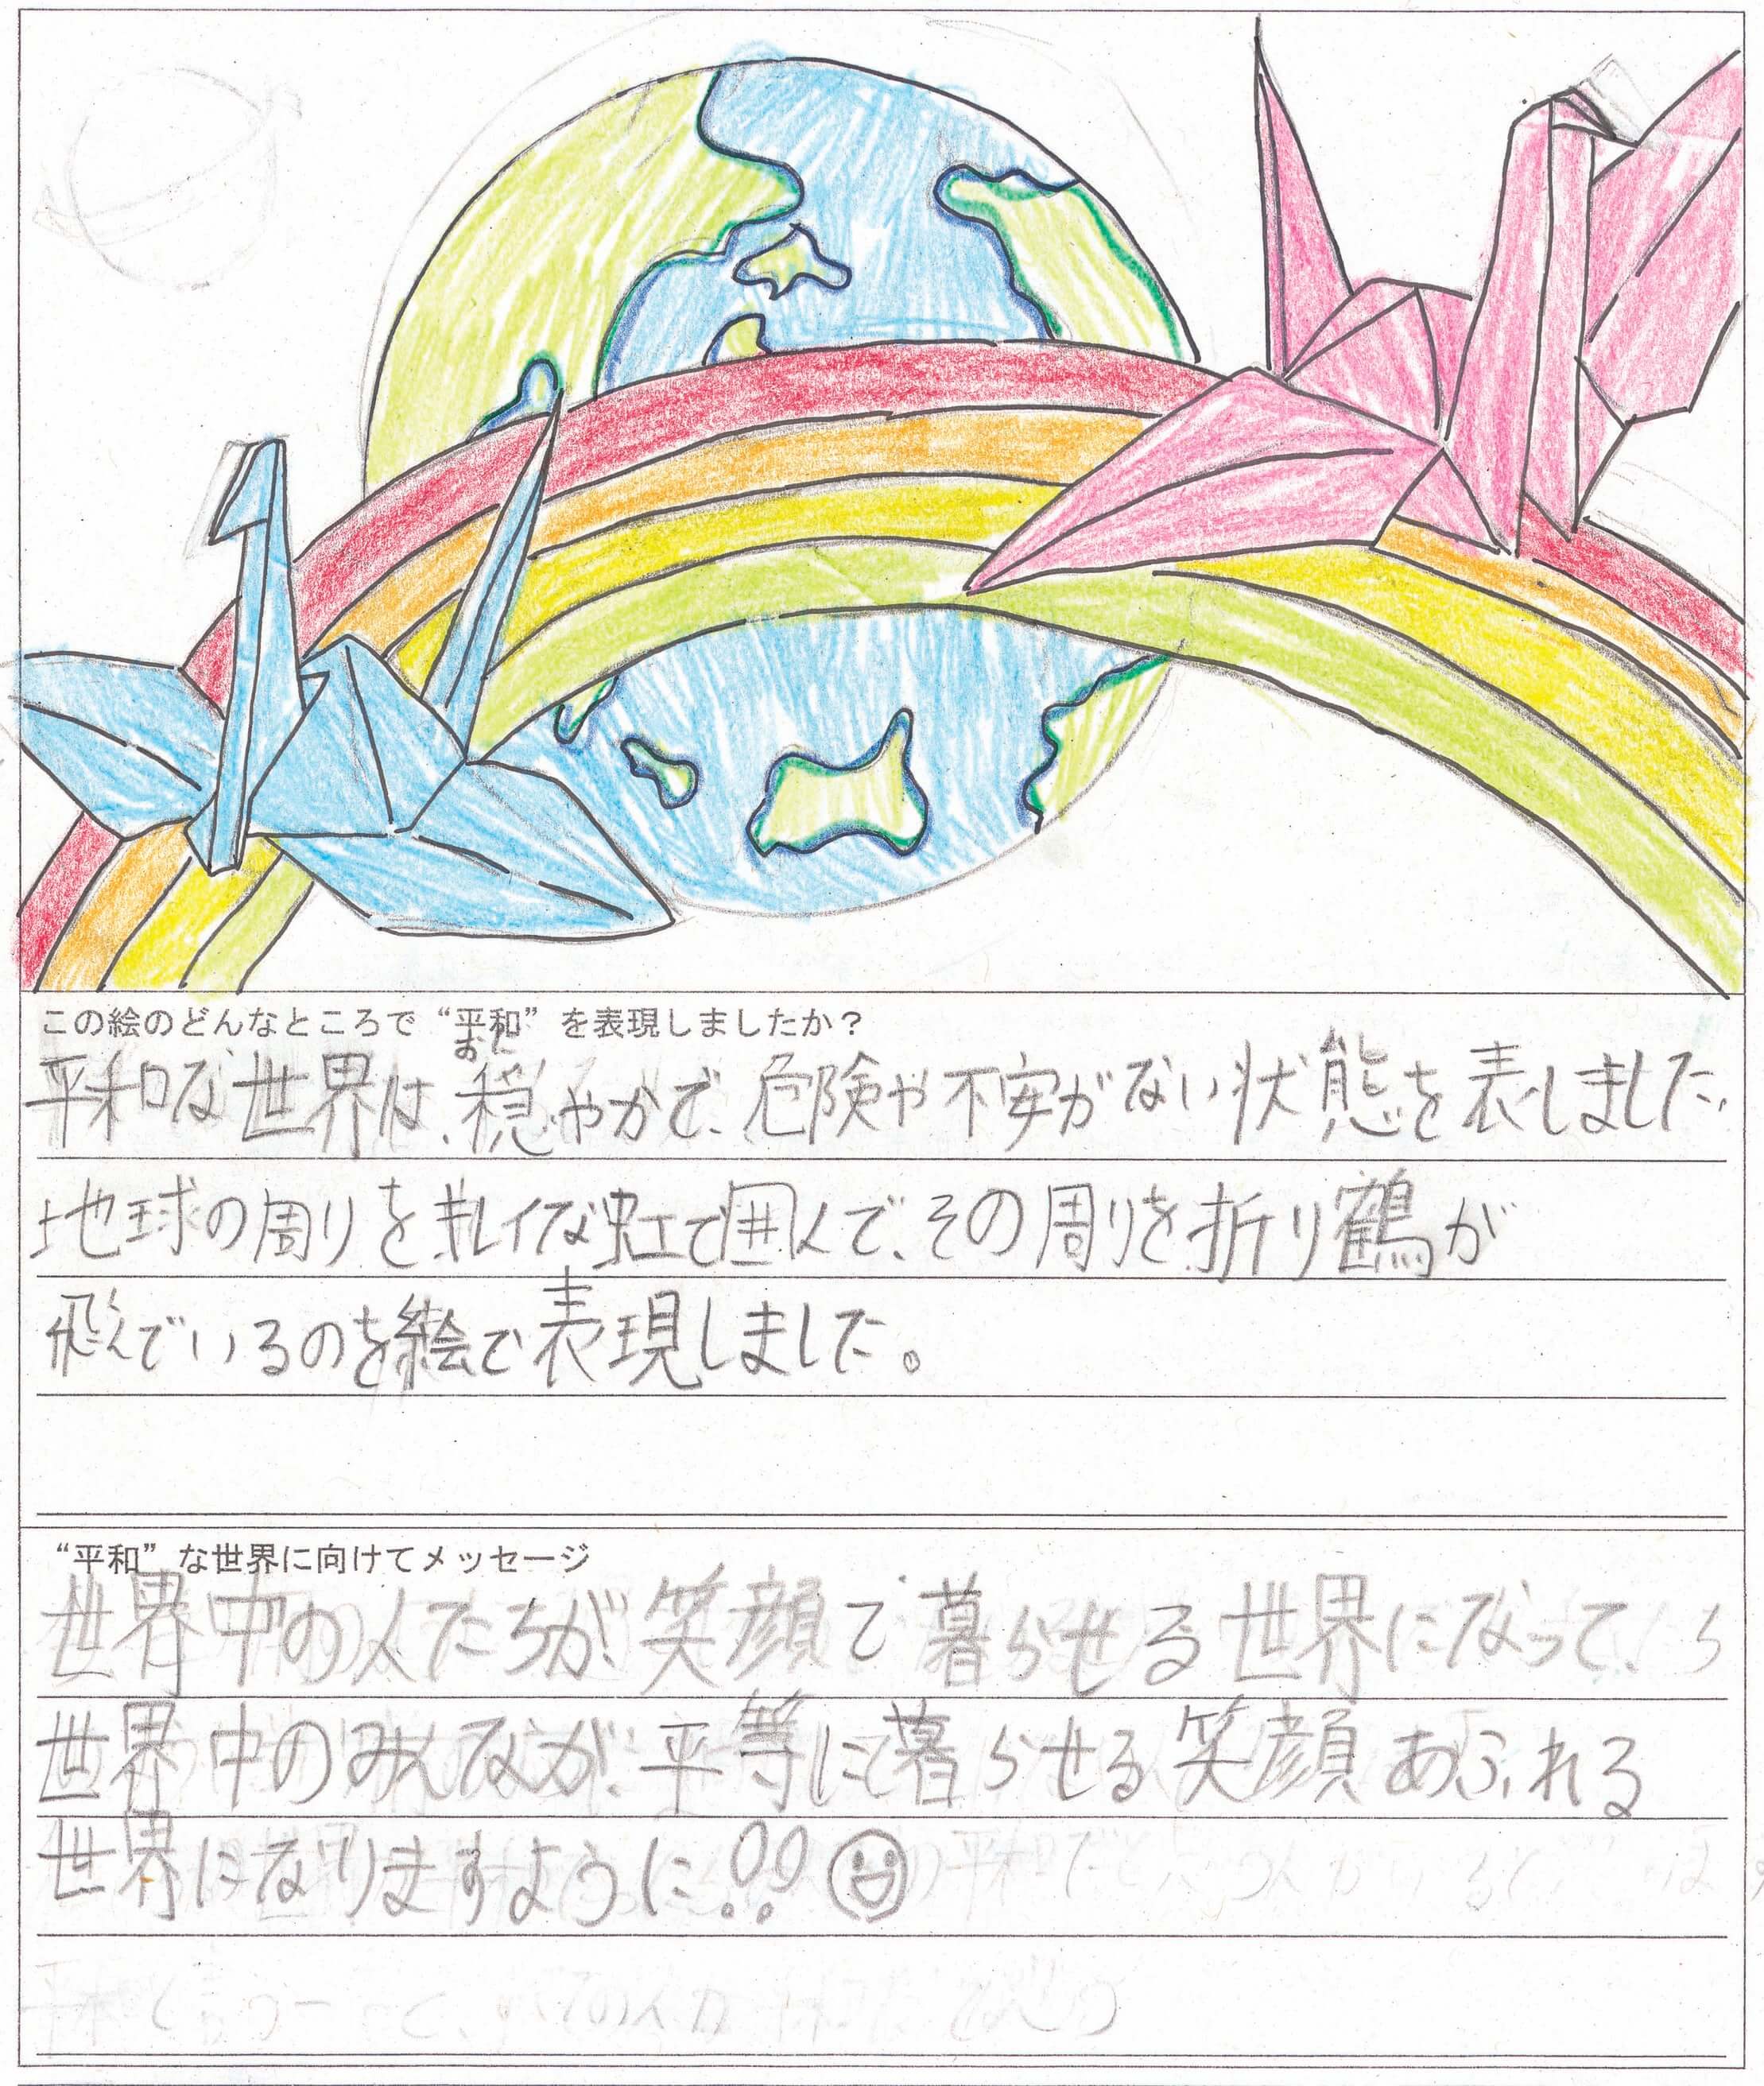 この絵のどんなところで“平和”を表現しましたか？
おだ
平和な世界は、穏やかで、危険や不安がない状態を表しました。
地球の周りをキレイな虹で囲んで、その周りを折り鶴が
飛んでいるのを絵で表現しました。
“平和”な世界に向けてメッセージ
世界中の人たちが笑顔で暮らせる世界になって、
世界中のみんなが、平等に暮らせる笑顔あふれる
世界になりますように!!